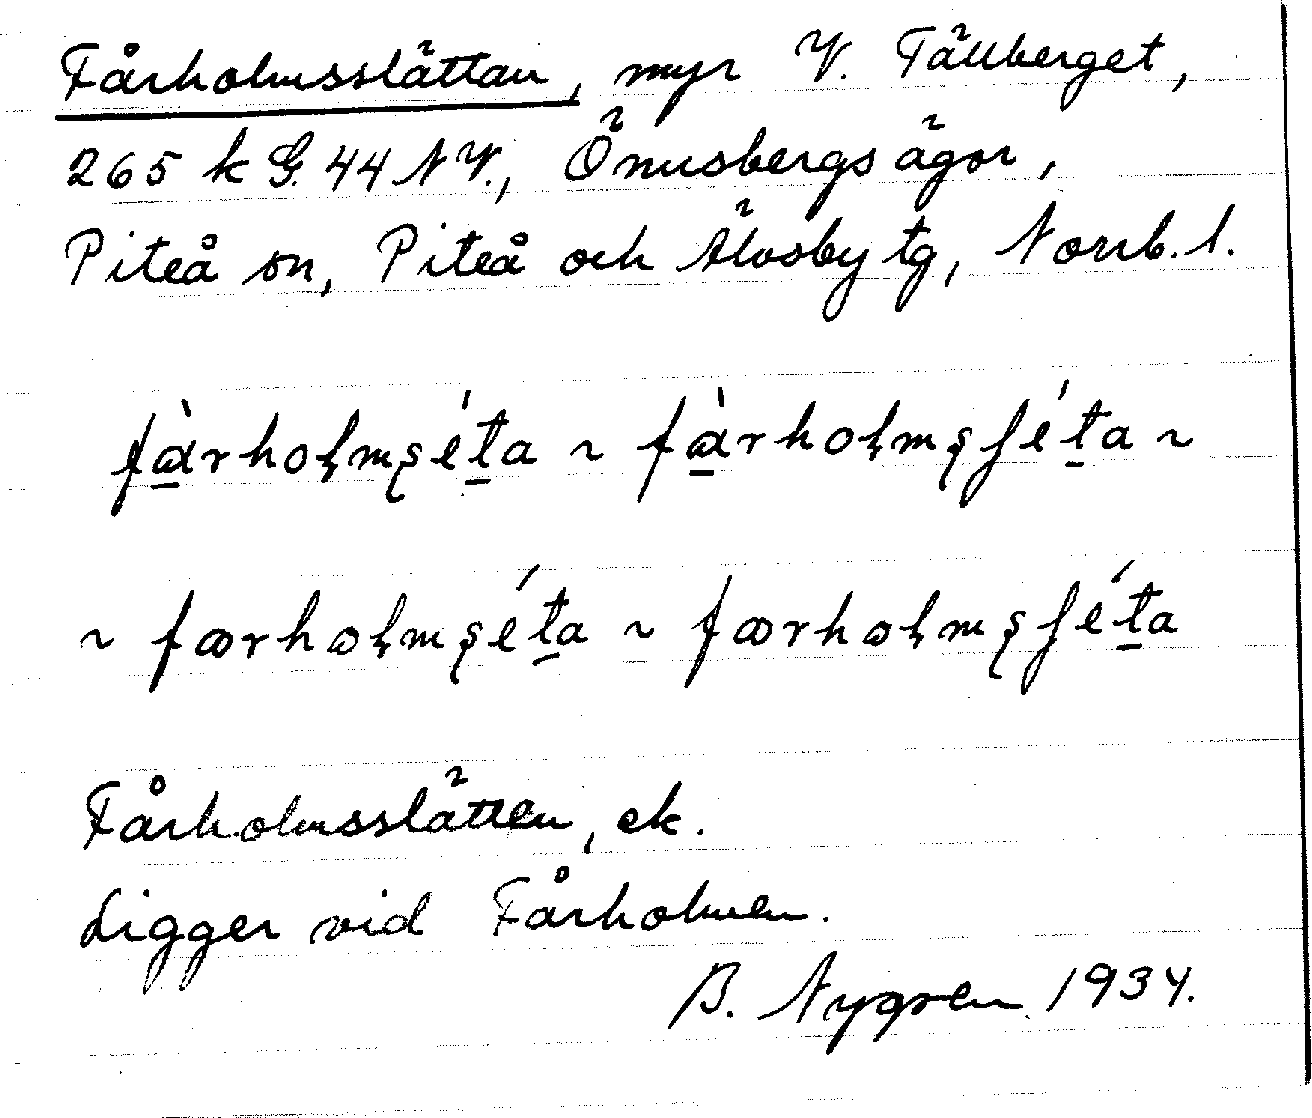 Fårholmsslättan, myr V. Tällberget,
265 k G. 44 NV., Önusbergs ägor,
Piteå sn, Piteå och Älvsby tg, Norrb. l.
fàrhoḷmṣéta ~ fàrhoḷmṣʃéta ~
~ færhoḷmṣéta ~ færhoḷmṣʃéta
Fårholmsslätten, ek.
Ligger vid Fårholmen.
B. Nygren 1934.